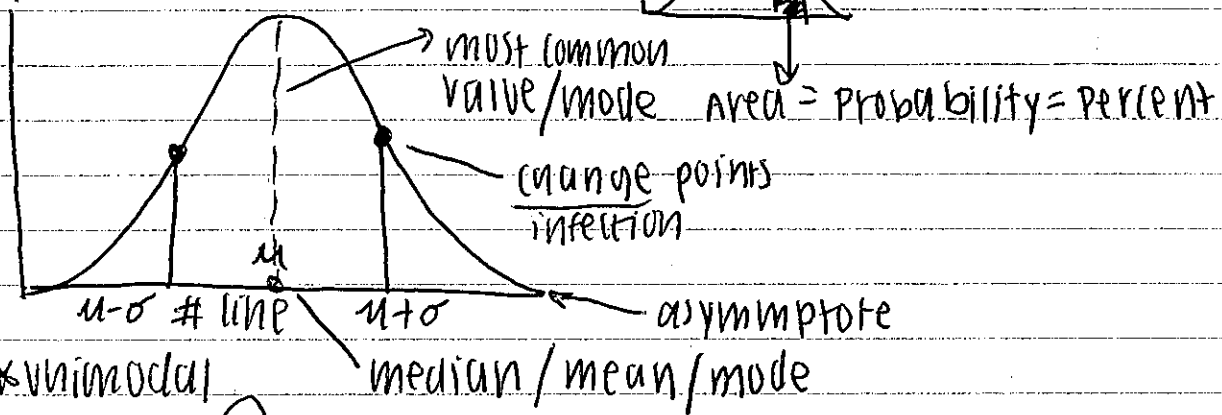 most common
value/mode Area = Probability = Percent
change points
infection
μ
μ-σ # line μ+σ
asymmptote
*unimodal median/mean/mode